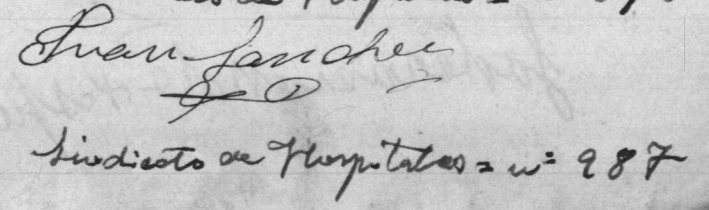 Juan Sanchez
Sindicato de Hospitales = nº 987